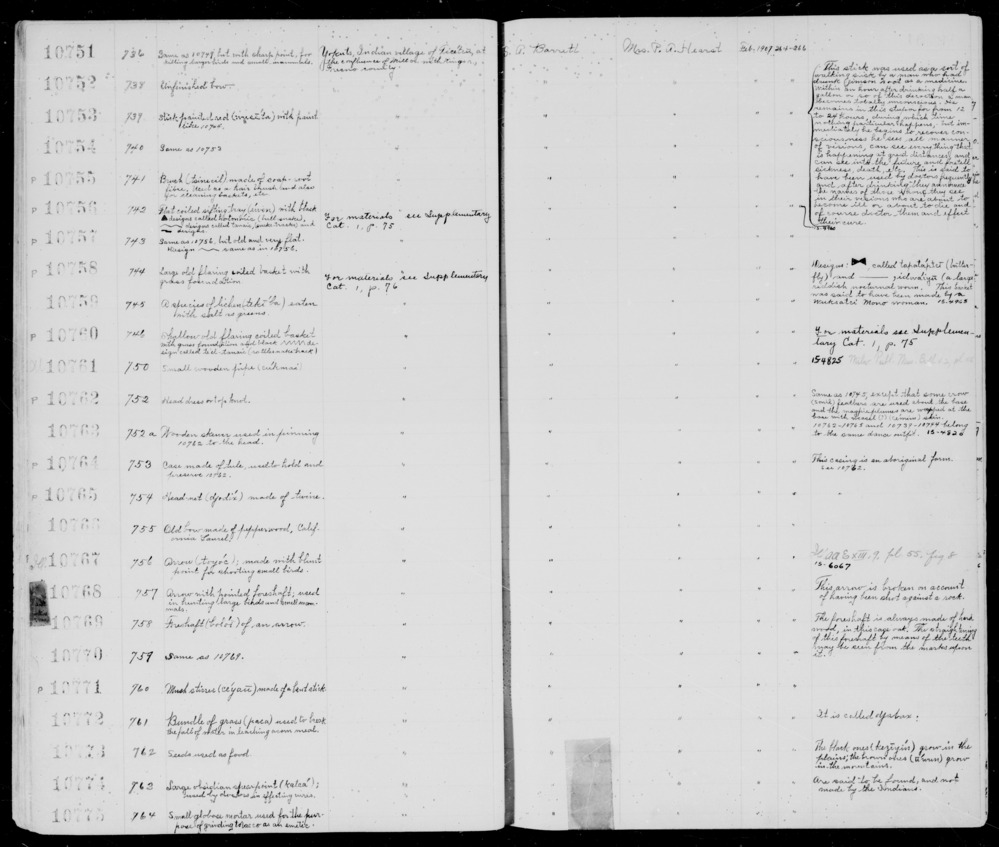 10751 736 Same as 10749 but with sharp point, for
hitting larger birds and small mammals.
Yokuts, Indian village of at
the confluence of with Kings,
Fresno county.
S. A. Barrett Mrs. P. A. Hearst Feb. 1907
10752 738 Unfinished bow.
10753 739 Stick painted red with paint
like 10744.
10754 740 Same as 10753
P 10755 741 Brush made of soap-root
fibre, used as a hair brush and also
for cleaning baskets, etc.
P 10756 742 Flat coiled sifting tray with black
designs called (bull snake),
designs called and
designs.
For materials see Supplementary
Cat. 1, p. 75
P 10757 743 Same as 10756, but old and very flat.
Design same as in 10756.
P 10758 744 Large old flaring coiled basket with
grass foundation.
For materials see Supplementary
Cat. 1, p. 76
10759 745 A species of lichen eaten
with salt as greens.
P 10760 746 Shallow old flaring coiled basket
with grass foundation and black de-
sign called (rattlesnake back)
10761 750 Small wooden pipe
P 10762 752 Headdress or topknot.
10763 752 a Wooden skewer used in pinning
10762 to the head.
P 10764 753 Case made of tule, used to hold and
preserve 10762.
P 10765 754 Head-net made of twine.
10766 755 Old bow made of pepperwood, Calif-
ornia Laurel.
10767 756 Arrow (toyoc); made with blunt
point for shooting small birds.
10768 757 Arrow with pointed foreshaft; used
in hunting large birds and small mam-
mals.
10769 758 Foreshaft of an arrow.
10770 759 Same as 10769.
P 10771 760 Mush stirrer made of a bent stick
10772 761 Bundle of grass (paca) used to break
the fall of water in leaching acorn meal.
10773 762 Seeds used as food
10774 763 Large obsidian spearpoint;
used by doctors in effecting cures.
10775 764 Small globose mortar used for the pur-
pose of grinding tobacco as an emetic.
This stick was used as a sort of
walking stick by a man who had
drunk Jimson root as a medicine.
Within an hour after drinking half a
gallon or so of this decoction a man
becomes totally unconscious. He
remains in this stupor for from 12
to 24 hours, during which time
nothing particular happens, but im-
mediately he begins to recover con-
sciousness he sees all manner
of visions, can see everything that
is happening at great distances, and
can see into the future and foretell
sickness, death, etc. This is said to
have been used by doctors frequently
and, after drinking they announce
the names of those whom they see
in their visions who are about to
become ill or about to die and
of course doctor them and effect
their cure.
Designs: called (butter-
fly) and (a large
reddish nocturnal worm. This basket
was said to have been made by a
Mono woman. 15-4923
For materials see Supplemen-
tary Cat. 1, p. 75
15-4825
Same as 10745, except that some crow
feathers are used about the base
and the magpie plumes are wrapped at the
base with skin.
10762-10765 and 10739-10744 belong
to the same dance outfit. 15-4826
This casing is an aboriginal form.
see 10762.
15-6067
This arrow is broken on account
of having been shot against a rock.
The foreshaft is always made of hard
wood, in this case oak. The straightening
of this foreshaft by means of the teeth
may be seen from the marks upon
it.
It is called
The black ones grow in the
plains; the brown ones grow
in the mountains.
Are said to be found, and not
made by the Indians.